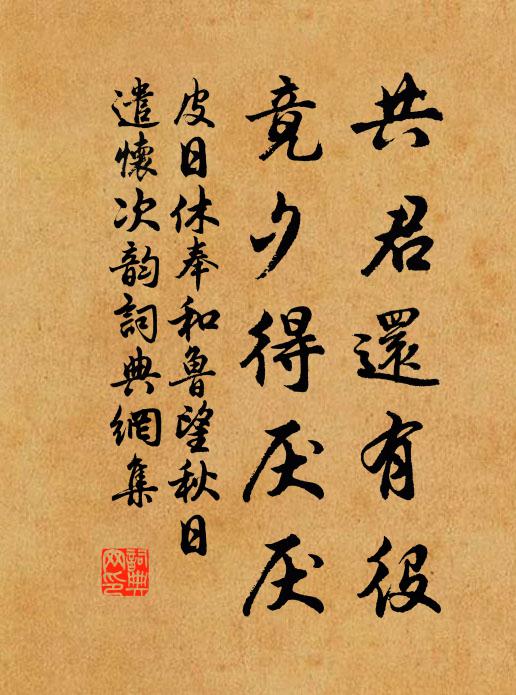 共君還有役
竟夕得厌厌
皮日休奉和鲁望秋日
遣懷次韵詞典網集
詞典網印